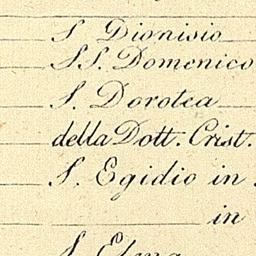 S Dionisio
S.S. Domenico
S. Dorotea
della Dott. Crist.
S. Egidio in
in
S. Elena